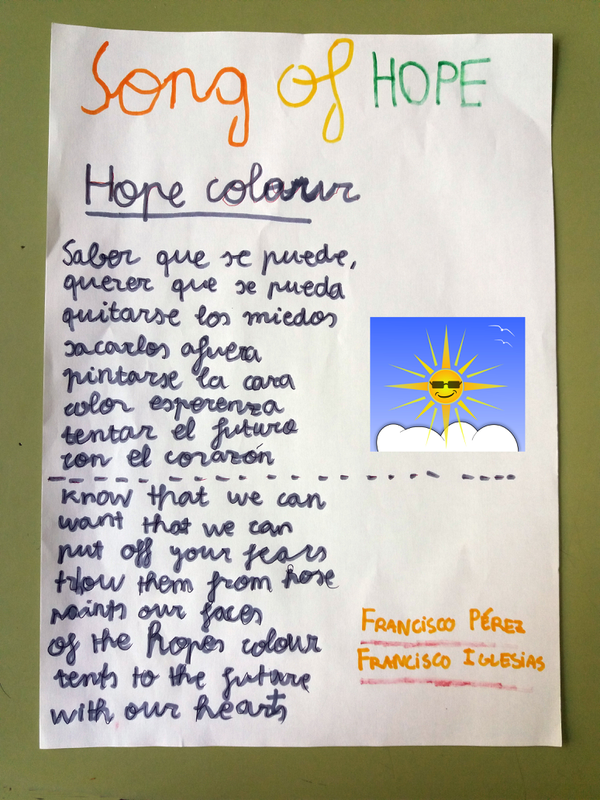 Song of HOPE
Hope colour
Saber que se puede,
querer que se pueda
quitarse los miedos
sacarlos afuera
pintarse la cara
color esperenza
tentar el futuro
con el corazón
know that we can
want that we can
put off your fears
them from
paints our faces
of the hopes colour
tents to the future
with our hearts
FRANCISCO PÉREZ
FRANCISCO IGLESIAS